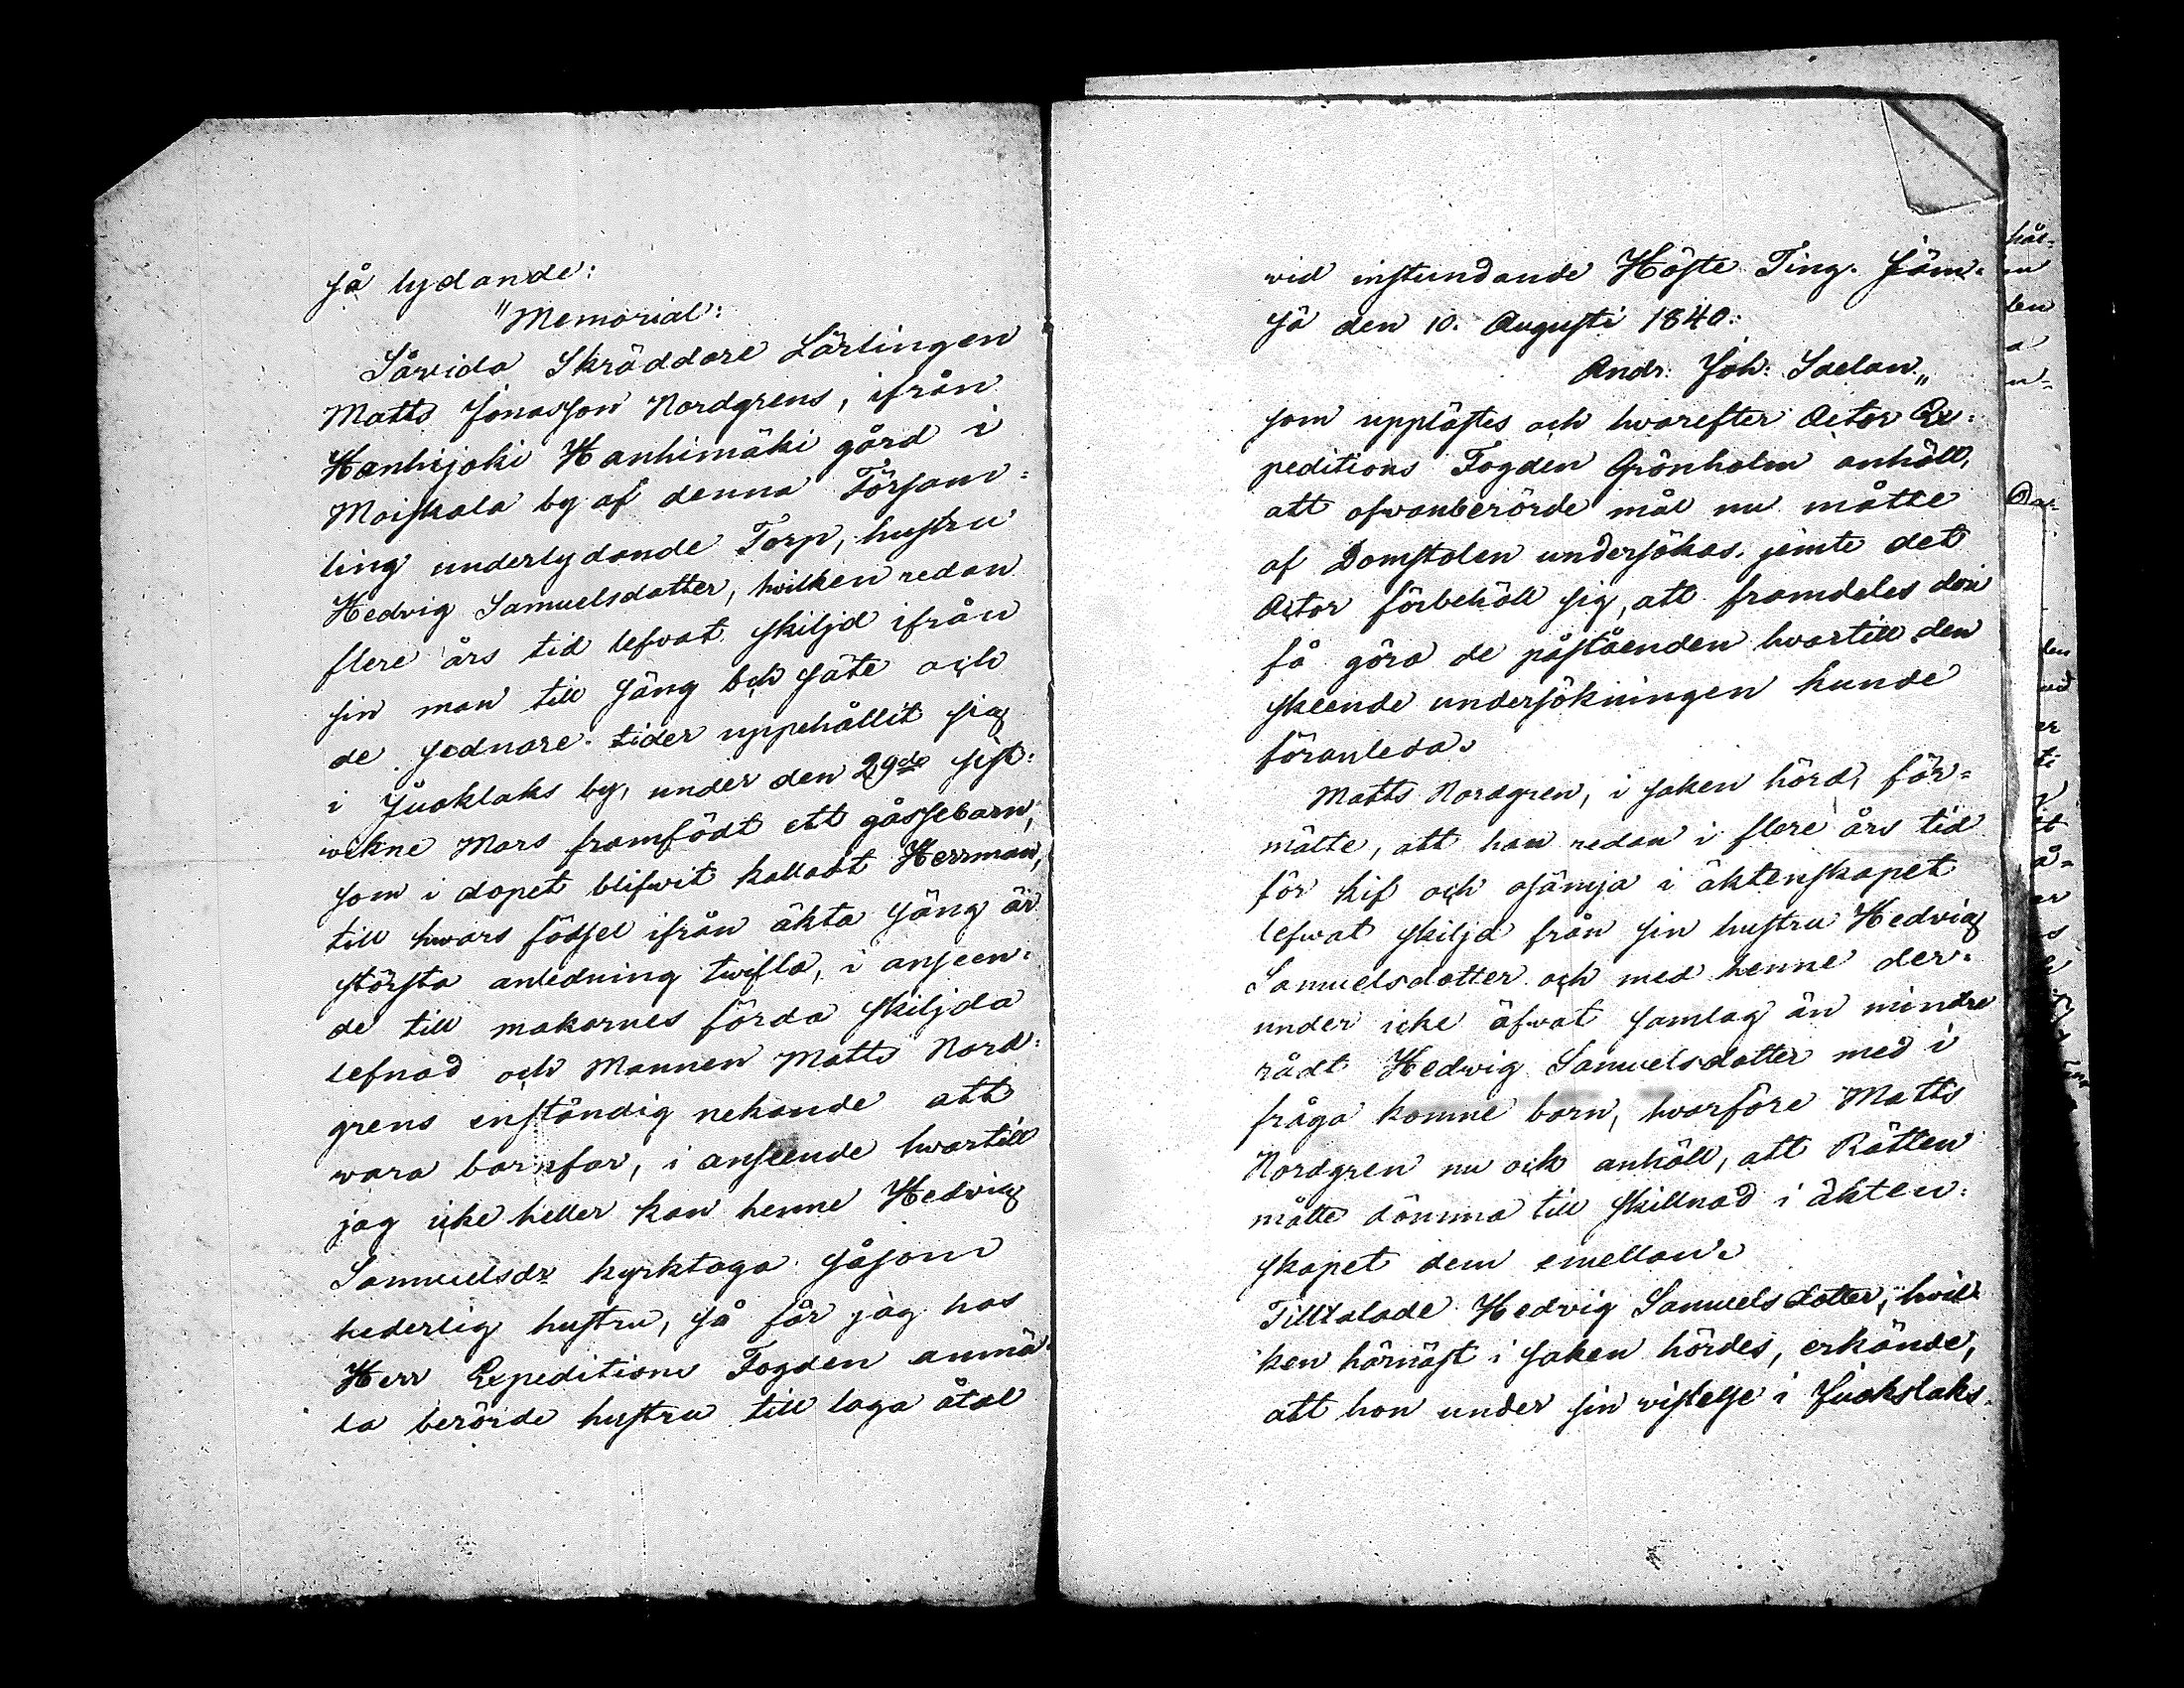 så lydande:
"Memorial:
Såvida Skräddare Lärlingen
Matts Jonasson Nordgrens, ifrån
Hanhijoki Hanhimäki gård i
Moiskala by af denna Försam:
ling underlydande Torp, hustru
Hedvig Samuelsdotter, hvilken redan
flere års tid lefvat skiljd ifrån
sin man till säng och säte och
de sednare tider uppehållit sig
i Juoklaks by, under den 29de sist:
wikne Mars framfödt ett gåssebarn,
som i dopet blifwit kalladt Herrman,
till hwars födsel ifrån äkta säng är
största anledning twifla, i anseen:
de till makarnes förda skiljda
lefnad och Mannen Matts Nord:
grens enständig nekande att
wara barnfar, i anseende hwartill
jag icke heller kan henne Hedvig
Samuelsdr kyrktaga såsom
hederlig hustru, så får jag hos
Herr Expeditions Fogden anmä:
la berörde hustru till laga åtal
wid instundande Höste Ting. Jäm:
sä den 10. Augusti 1840:
Andr: Joh: Saelan"
som upplästes och hvarefter Actor Ex:
peditions Fogden Grönholm anhöll,
att ofvanberörde mål nu måtte
af Domstolen undersökas, jemte det
Actor förbehöll sig, att framdeles
få göra de påståenden hvartill den
skeende undersökningen kunde
föranleda.
Matts Nordgren, i saken hörd, för=
mälte, att han redan i flere års tid
för kif och osämja i äktenskapet
lefwat skiljd från sin hustru Hedvig
Samuelsdotter och med henne der:
under icke äfwat samlag än mindre
rådt Hedwig Samuelsdotter med i
fråga komne barn, hvarföre Matts
Nordgren nu ock anhöll, att Rätten
måtte dömma till skillnad i äkten:
skapet dem emellan.
Tilltalade Hedvig Samuelsdotter, hvil:
ken härnäst i saken hördes, erkände,
att hon under sin vistelse i Juokslaks